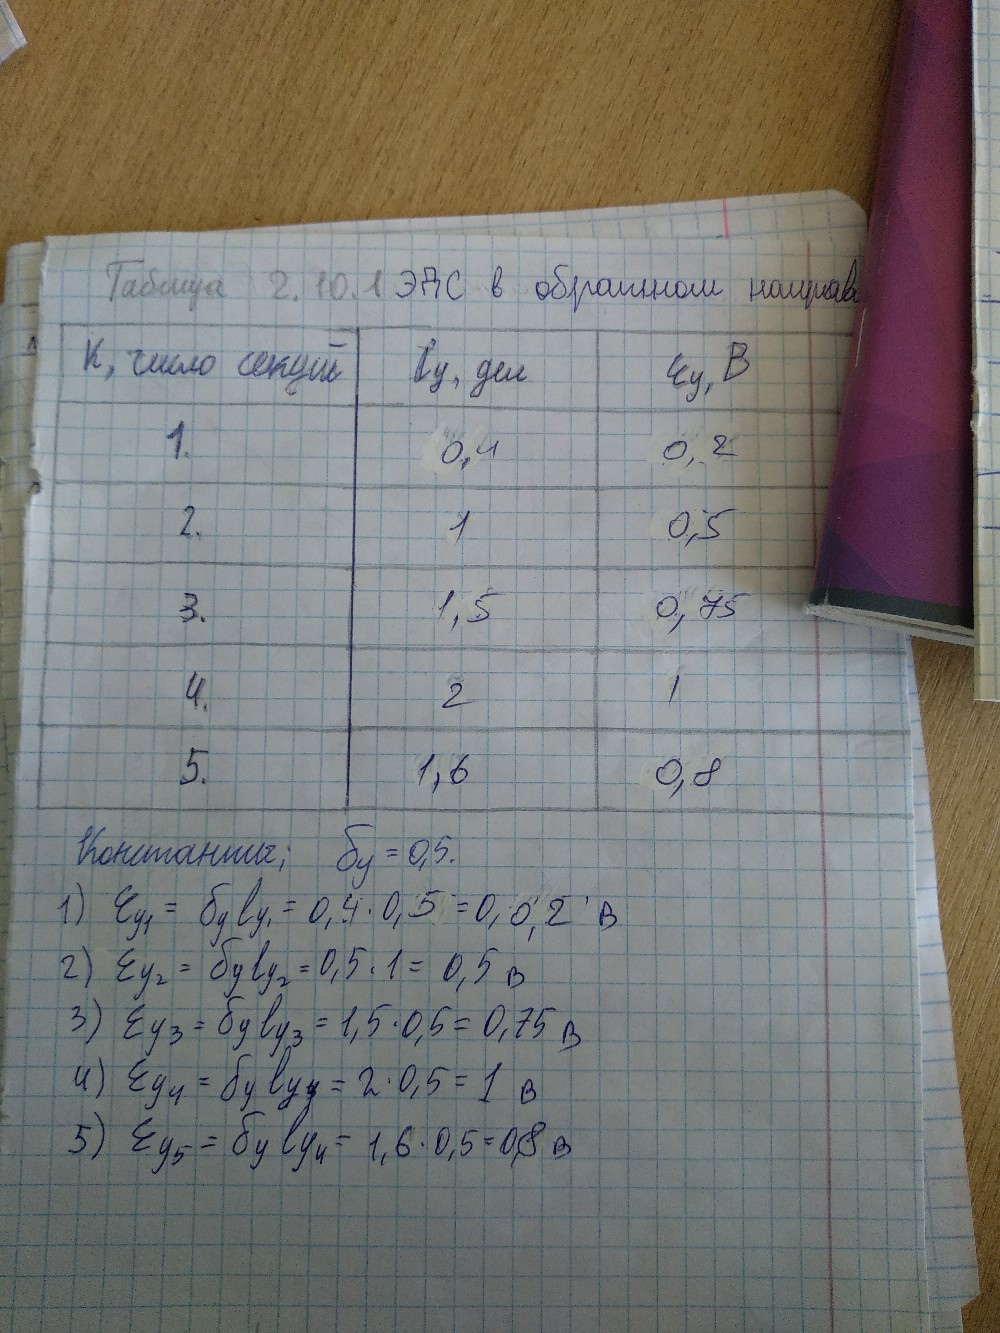 Таблица 2.10.1 ЭДС в обратном направ
К, число секций ly, дел Ɛy, В
1. 0,4 0,2
2. 1 0,5
3. 1,5 0,75
4. 2 1
5. 1,6 0,8
Константы; бy = 0,5.
1) Ɛy₁ = бy ly₁ = 0,4 · 0,5 = 0,0,2 В
2) Ɛy₂ = бy ly₂ = 0,5 · 1 = 0,5 В
3) Ɛy₃ = бy ly₃ = 1,5 · 0,5 = 0,75 В
4) Ɛy₄ = бy ly₄ = 2 · 0,5 = 1 В
5) Ɛy₅ = бy ly₄ = 1,6 · 0,5 = 0,8 В